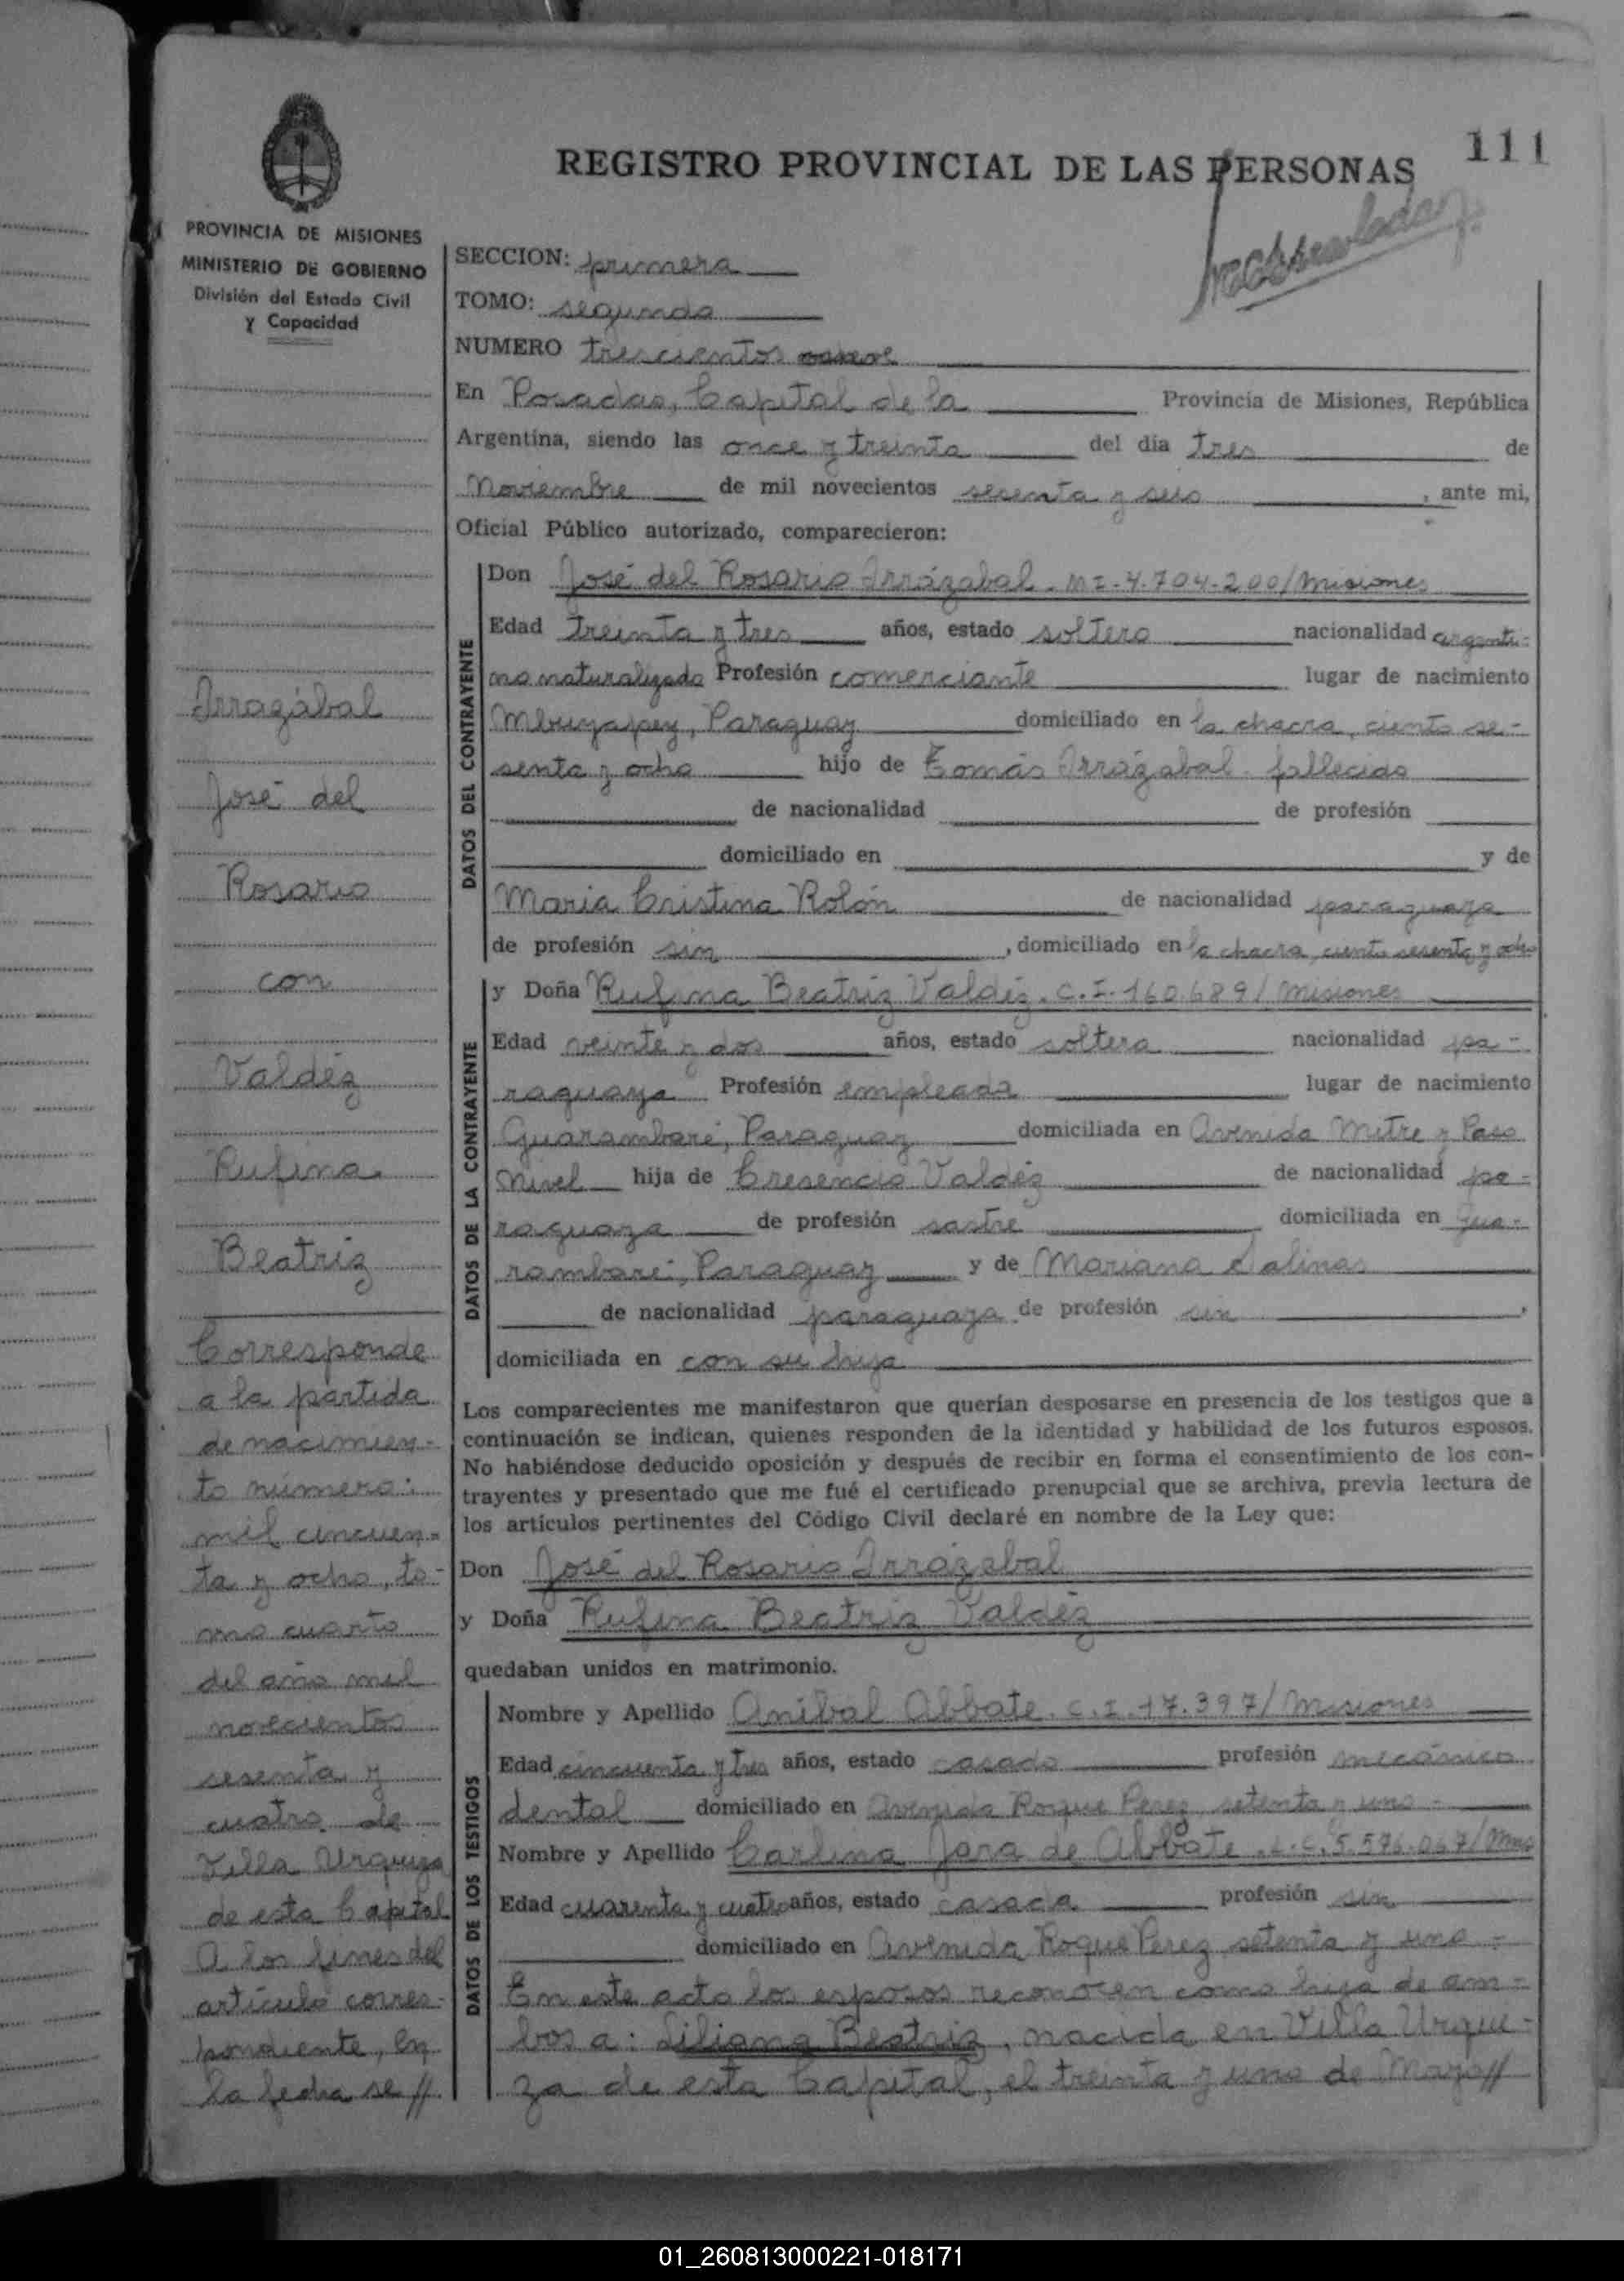 111
REGISTRO PROVINCIAL DE LAS PERSONAS
PROVINCIA DE MISIONES
MINISTERIO DE GOBIERNO
División del Estado Civil
y Capacidad
SECCION: primera
TOMO: segundo
NUMERO trescientos
En Posadas, Capital de la Provincia de Misiones, República
Argentina, siendo las once y treinta del día tres de
Noviembre de mil novecientos sesenta y seis, ante mi,
Oficial Público autorizado, comparecieron:
DATOS DEL CONTRAYENTE
Don José del Rosario Irrázabal - M I - 4.704.200/Misiones
Edad treinta y tres años, estado soltero nacionalidad argenti-
no naturalizado Profesión comerciante lugar de nacimiento
Mbuyapey, Paraguay domiciliado en la chacra, ciento se-
senta y ocho hijo de Tomás Irrázabal - fallecido
de nacionalidad de profesión
domiciliado en y de
Maria Cristina Rolón de nacionalidad paraguaya
de profesión sin, domiciliado en la chacra, ciento sesenta y ocho
DATOS DE LA CONTRAYENTE
y Doña Rufina Beatriz Valdéz. C.I. 160.689/Misiones
Edad veinte y dos años, estado soltera nacionalidad pa-
raguaya Profesión empleada lugar de nacimiento
Guarambaré, Paraguay domiciliada en Avenida Mitre y Paso
Nivel hija de Cresencio Valdéz de nacionalidad pa-
raguaya de profesión sastre domiciliada en Gua-
rambaré, Paraguay y de Mariana Salinas
de nacionalidad paraguaya de profesión sin,
domiciliada en con su hija
Los comparecientes me manifestaron que querían desposarse en presencia de los testigos que a
continuación se indican, quienes responden de la identidad y habilidad de los futuros esposos.
No habiéndose deducido oposición y después de recibir en forma el consentimiento de los con-
trayentes y presentado que me fué el certificado prenupcial que se archiva, previa lectura de
los artículos pertinentes del Código Civil declaré en nombre de la Ley que:
Don José del Rosario Irrázabal
y Doña Rufina Beatriz Valdéz
quedaban unidos en matrimonio.
DATOS DE LOS TESTIGOS
Nombre y Apellido Anibal Abbate. C.I. 17.397/Misiones
Edad cincuenta y tres años, estado casado profesión mecánico
dental domiciliado en Avenida Roque Perez setenta y uno -
Nombre y Apellido Carlina Jara de Abbate. L.C. 5.576.067/Mnes
Edad cuarenta y cuatro años, estado casada profesión sin
domiciliado en Avenida Roque Perez setenta y uno -
En este acto los esposos reconocen como hija de am-
bos a: Liliana Beatriz, nacida en Villa Urqui-
za de esta Capital, el treinta y uno de Mayo//
Irrazábal
José del
Rosario
con
Valdéz
Rufina
Beatriz
Corresponde
a la partida
de nacimien-
to número:
mil cincuen-
ta y ocho, to-
mo cuarto
del año mil
novecientos
sesenta y
cuatro de
Villa Urquiza
de esta Capital
A los fines del
artículo corres-
pondiente, en
la fecha se //
01_260813000221-018171